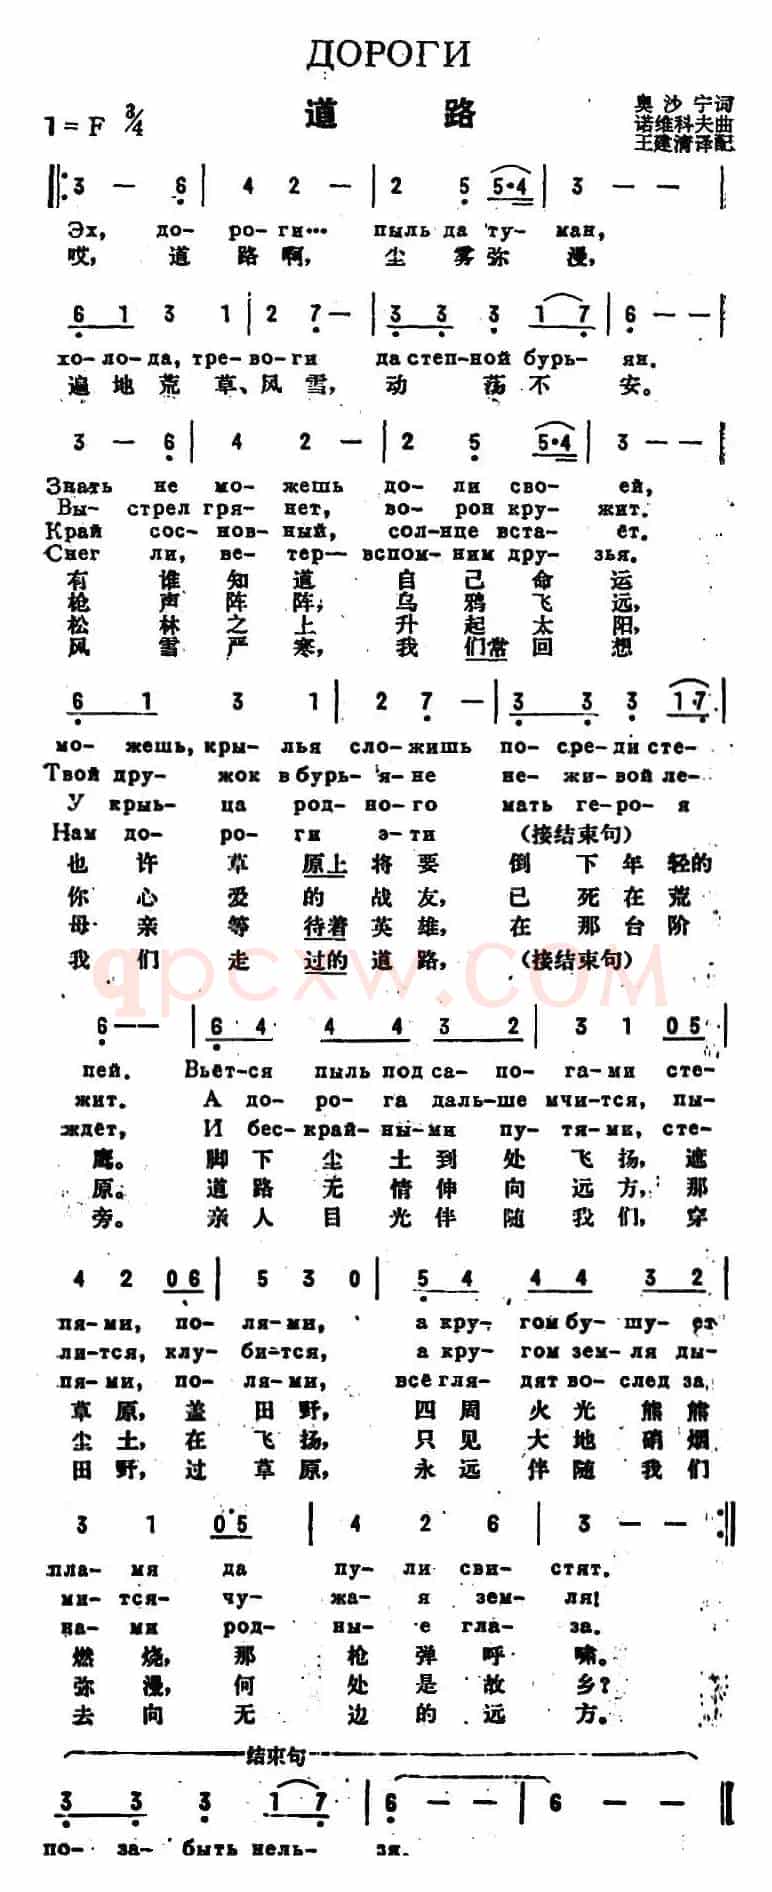 ДОРОГИ
道 路
1=F 3/4
奥沙宁词
诺维科夫曲
王建清译配
3 — 6 | 4 2 — | 2 5 5·4 | 3 — — |
Эх, до- ро- ги… пыль да ту- ман,
哎, 道 路啊, 尘 雾弥 漫,
6 1 3 1 | 2 7 — | 3 3 3 1 7 | 6 — —
хо- ло- да, тре- во- ги да степ-ной бурь- ян.
遍 地 荒 草、风 雪, 动 荡 不 安。
3 — 6 | 4 2 — | 2 5 5·4 | 3 — — |
Знать не мо- жешь до- ли сво- ей,
Вы- стрел гря- нет, во- рон кру- жит.
Край сос- нов- ный, солн-це вста- ёт.
Снег ли, ве- тер— вспом- ним дру- зья.
有 谁 知 道 自 己 命 运
枪 声 阵 阵; 乌 鸦 飞 远,
松 林 之 上 升 起 太 阳,
风 雪 严 寒, 我 们常 回 想
6 1 3 1 | 2 7 — | 3 3 3 1·7 |
мо- жешь, кры- лья сло-жишь по- сре-ди сте-
Твой дру- жок в бурь- я-не не- жи-вой ле-
У крыь- ца род- но-го мать ге-ро- я
Нам до- ро- ги э-ти (接结束句)
也 许 草 原上 将 要 倒 下 年 轻的
你 心 爱 的 战 友, 已 死 在 荒
母 亲 等 待着 英 雄, 在 那 台 阶
我 们 走 过的 道 路, (接结束句)
qpcxw.COM
6 — — | 6 4 4 4 3 2 | 3 1 0 5 |
пей. Вьёт-ся пыль под са- по- га- ми сте-
жит. А до- ро- га даль-ше мчит-ся, пы-
ждёт, И бес-край-ны-ми пу- тя-ми, сте-
鹰。 脚 下 尘 土 到 处 飞 扬, 遮
原。 道 路 无 情 伸 向 远 方, 那
旁。 亲 人 目 光 伴 随 我 们, 穿
4 2 0 6 | 5 3 0 | 5 4 4 4 3 2
пя-ми, по- ля-ми, а кру- гом бу- шу- ет
лит-ся, клу- бит-ся, а кру- гом зем- ля ды-
пя-ми, по- ля-ми, всё гля- дят во- след за,
草 原, 盖 田 野, 四 周 火 光 熊 熊
尘 土, 在 飞 扬, 只 见 大 地 硝 烟
田 野, 过 草 原, 永 远 伴 随 我 们
3 1 0 5 | 4 2 6 | 3 — — :‖
пла- мя да пу- ли сви- стят.
ми- тся- чу- жа- я зем- ля!
на- ми род- ны- е гла- за.
燃 烧, 那 枪 弹 呼 啸。
弥 漫, 何 处 是 故 乡?
去 向 无 边 的 远 方。
结束句
3 3 3 1 7 | 6 — — | 6 — — ‖
по- за- быть нель- зя.